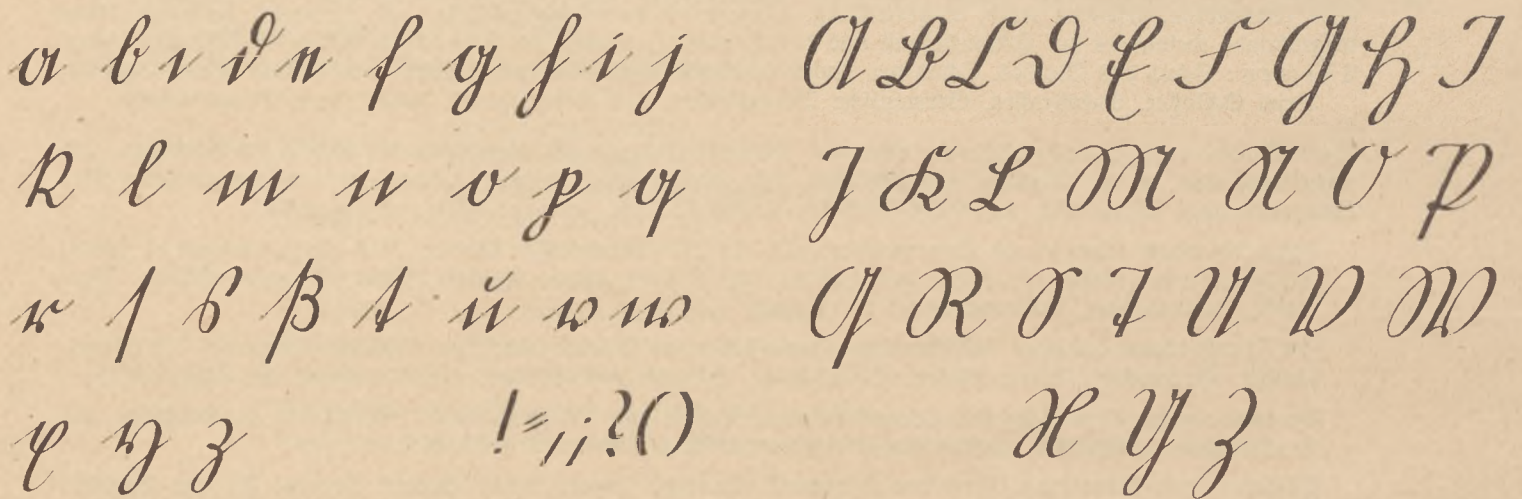 a b c d e f g h i j
k l m n o p q
r ſ s ß t u v w
x y z ! = , ; ? ( )
A B C D E F G H I
J K L M N O P
Q R S T U V W
X Y Z